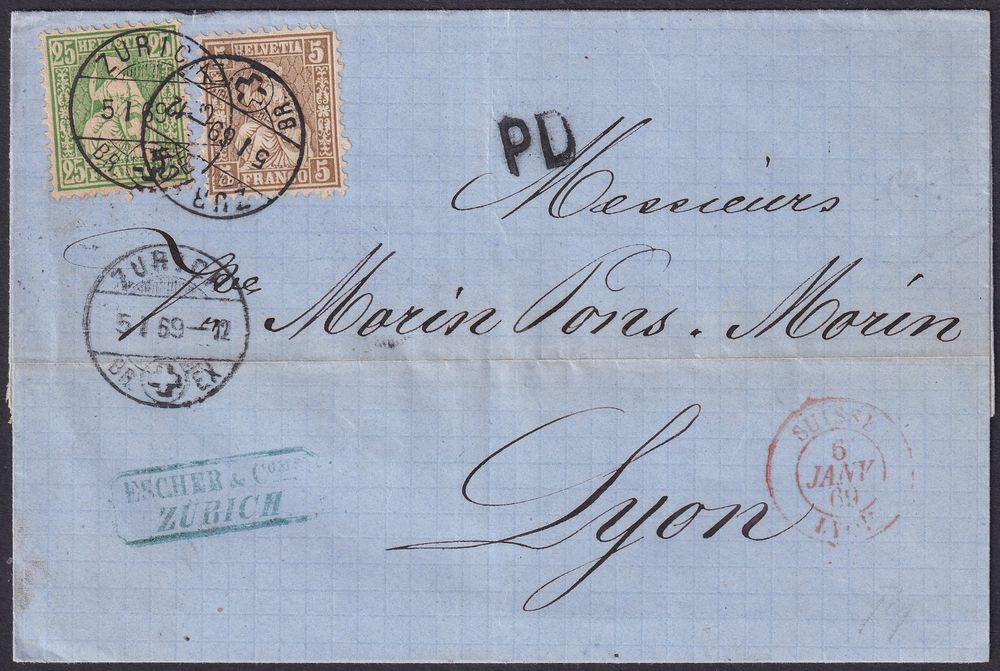 25 HELVETIA 25
25 FRANCO 25
5 HELVETIA 5
5 FRANCO 5
ZURICH
5 I 69 - 12
BR. EX
ZURICH
5 I 69 - 12
BR. EX
PD
Messieurs
Vve Morin Pons. Morin
Lyon
ZURICH
5 I 69 - 12
BR. EX
ESCHER & COMP.
ZURICH
SUISSE
6
JANV
69
LYON